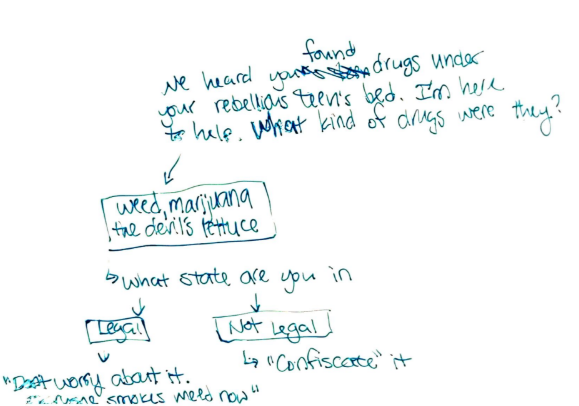 found
We heard you drugs under
your rebellious teen's bed. I'm here
to help. What kind of drugs were they?
weed, marijuana
the devil's lettuce
what state are you in
Legal
Not Legal
"Don't worry about it.
smokes weed now"
"Confiscate" it